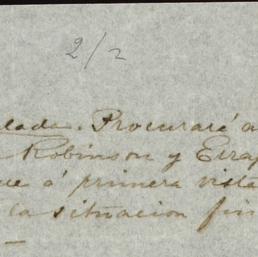 2/2
lada. Procuraré a
Robinson y Erra
ue á primera vista
la situacion fin